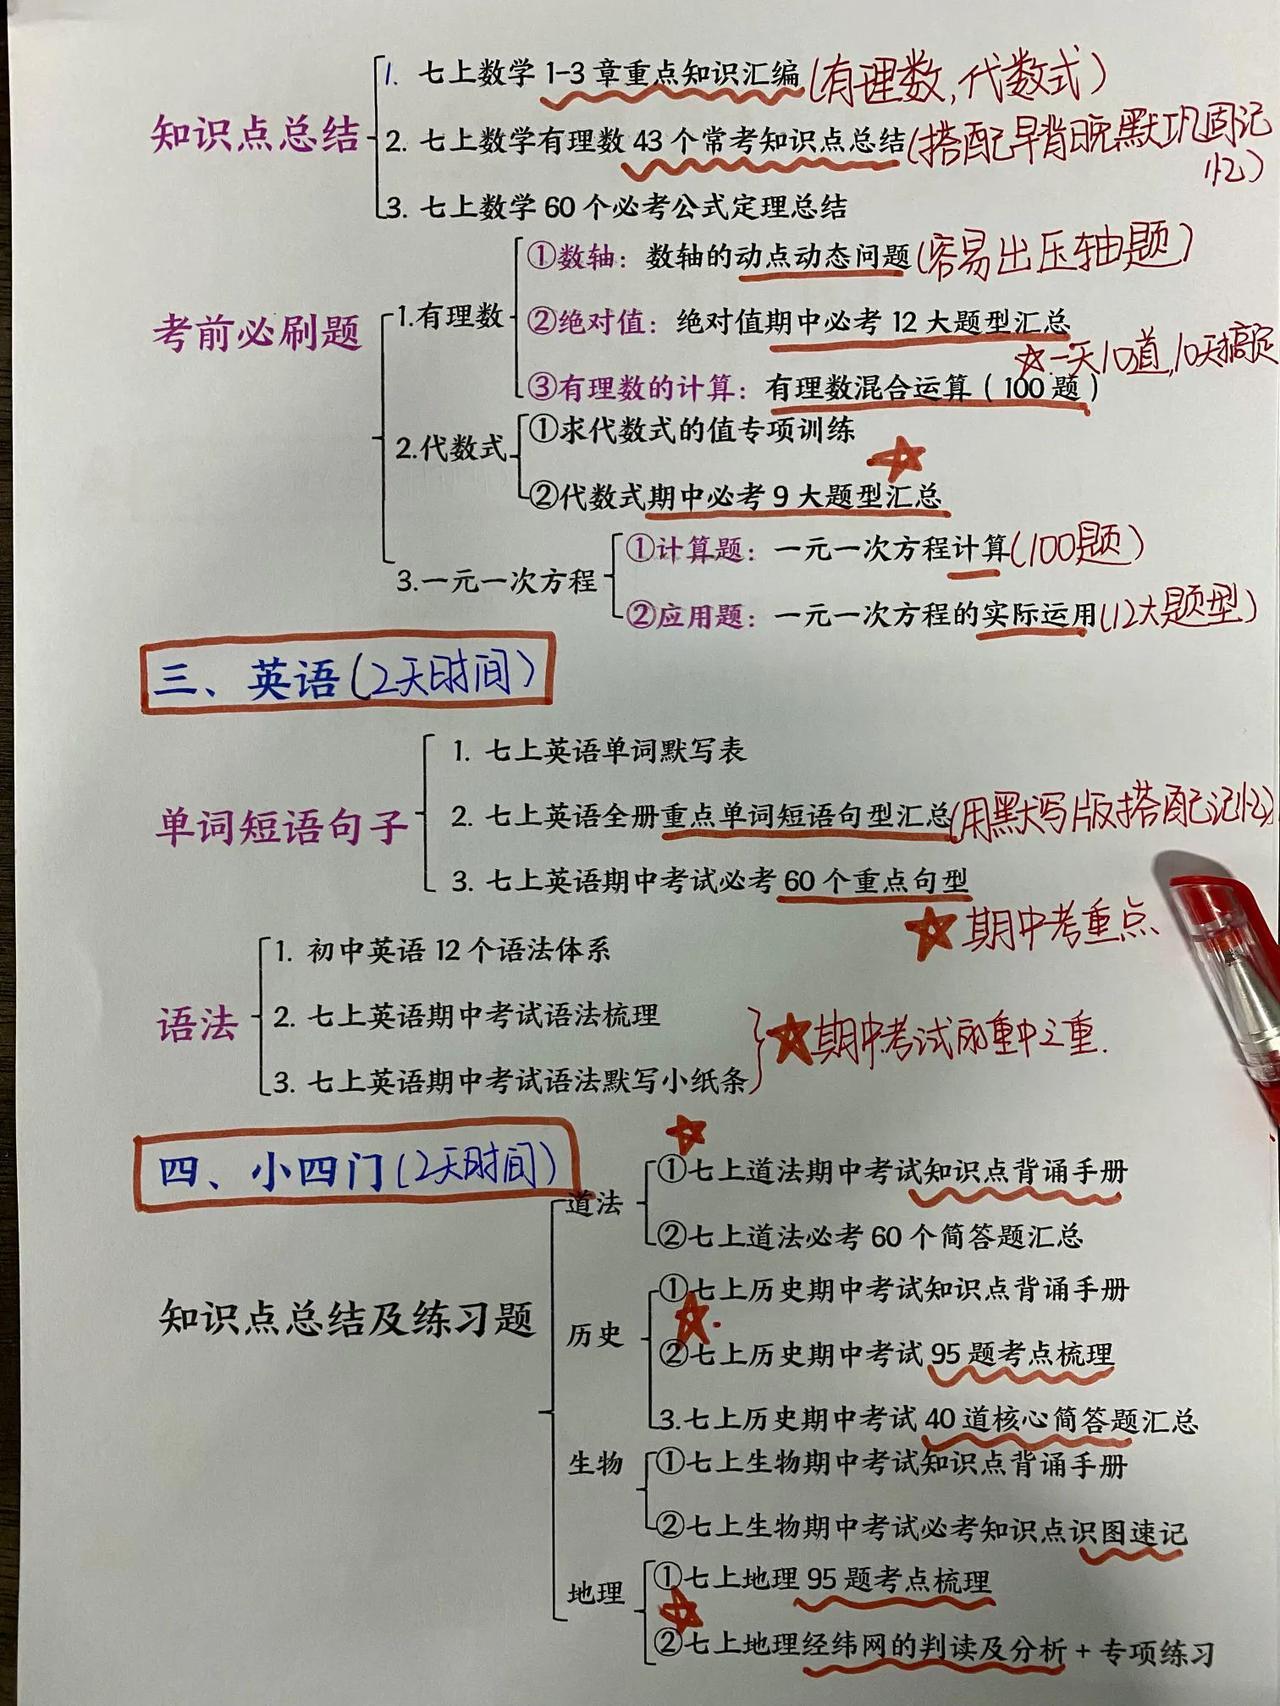 知识点总结
1. 七上数学 1-3 章重点知识汇编(有理数,代数式)
2. 七上数学有理数 43 个常考知识点总结(搭配早背晚默巩固记
忆)
3. 七上数学 60 个必考公式定理总结
考前必刷题
1.有理数
①数轴：数轴的动点动态问题(容易出压轴题)
②绝对值：绝对值期中必考 12 大题型汇总
一天10道,10天搞定
③有理数的计算：有理数混合运算（100 题）
2.代数式
①求代数式的值专项训练
②代数式期中必考 9 大题型汇总
3.一元一次方程
①计算题：一元一次方程计算(100题)
②应用题：一元一次方程的实际运用(12大题型)
三、英语(2天时间)
单词短语句子
1. 七上英语单词默写表
2. 七上英语全册重点单词短语句型汇总(用默写版搭配记忆)
3. 七上英语期中考试必考 60 个重点句型
期中考重点
语法
1. 初中英语 12 个语法体系
2. 七上英语期中考试语法梳理
3. 七上英语期中考试语法默写小纸条
期中考试的重中之重.
四、小四门(2天时间)
知识点总结及练习题
道法
①七上道法期中考试知识点背诵手册
②七上道法必考 60 个简答题汇总
历史
①七上历史期中考试知识点背诵手册
②七上历史期中考试 95 题考点梳理
3.七上历史期中考试 40 道核心简答题汇总
生物
①七上生物期中考试知识点背诵手册
②七上生物期中考试必考知识点识图速记
地理
①七上地理 95 题考点梳理
②七上地理经纬网的判读及分析 + 专项练习